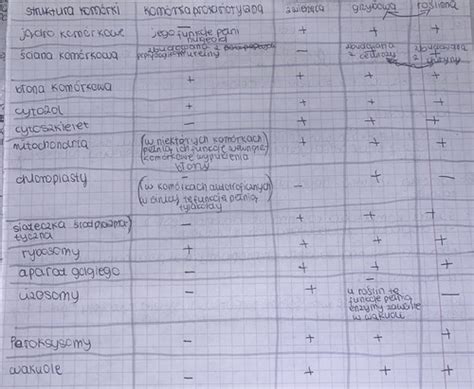 struktura komórki komórka prokariotyczna zwierzęca grzybowa roślinna
jądro komórkowe - jego funkcje pełni nukleoid + + +
ściana komórkowa zbudowana z mureiny - zbudowana z celulozy zbudowana z chityny
błona komórkowa + + + +
cytozol + + + +
cytoszkielet - + + +
mitochondria (w niektórych komórkach pełnią ich funkcje wewnętrzne komórkowe wypuklenia błony) + + +
chloroplasty - (w komórkach autotroficznych w sinicy tę funkcję pełnią tylakoidy) - + -
siateczka śródplazmatyczna - + + +
rybosomy + + + +
aparat golgiego - + + +
lizosomy - + - u roślin tę funkcję pełnią enzymy zawarte w wakuoli -
Peroksysomy - + + +
wakuole - + + +